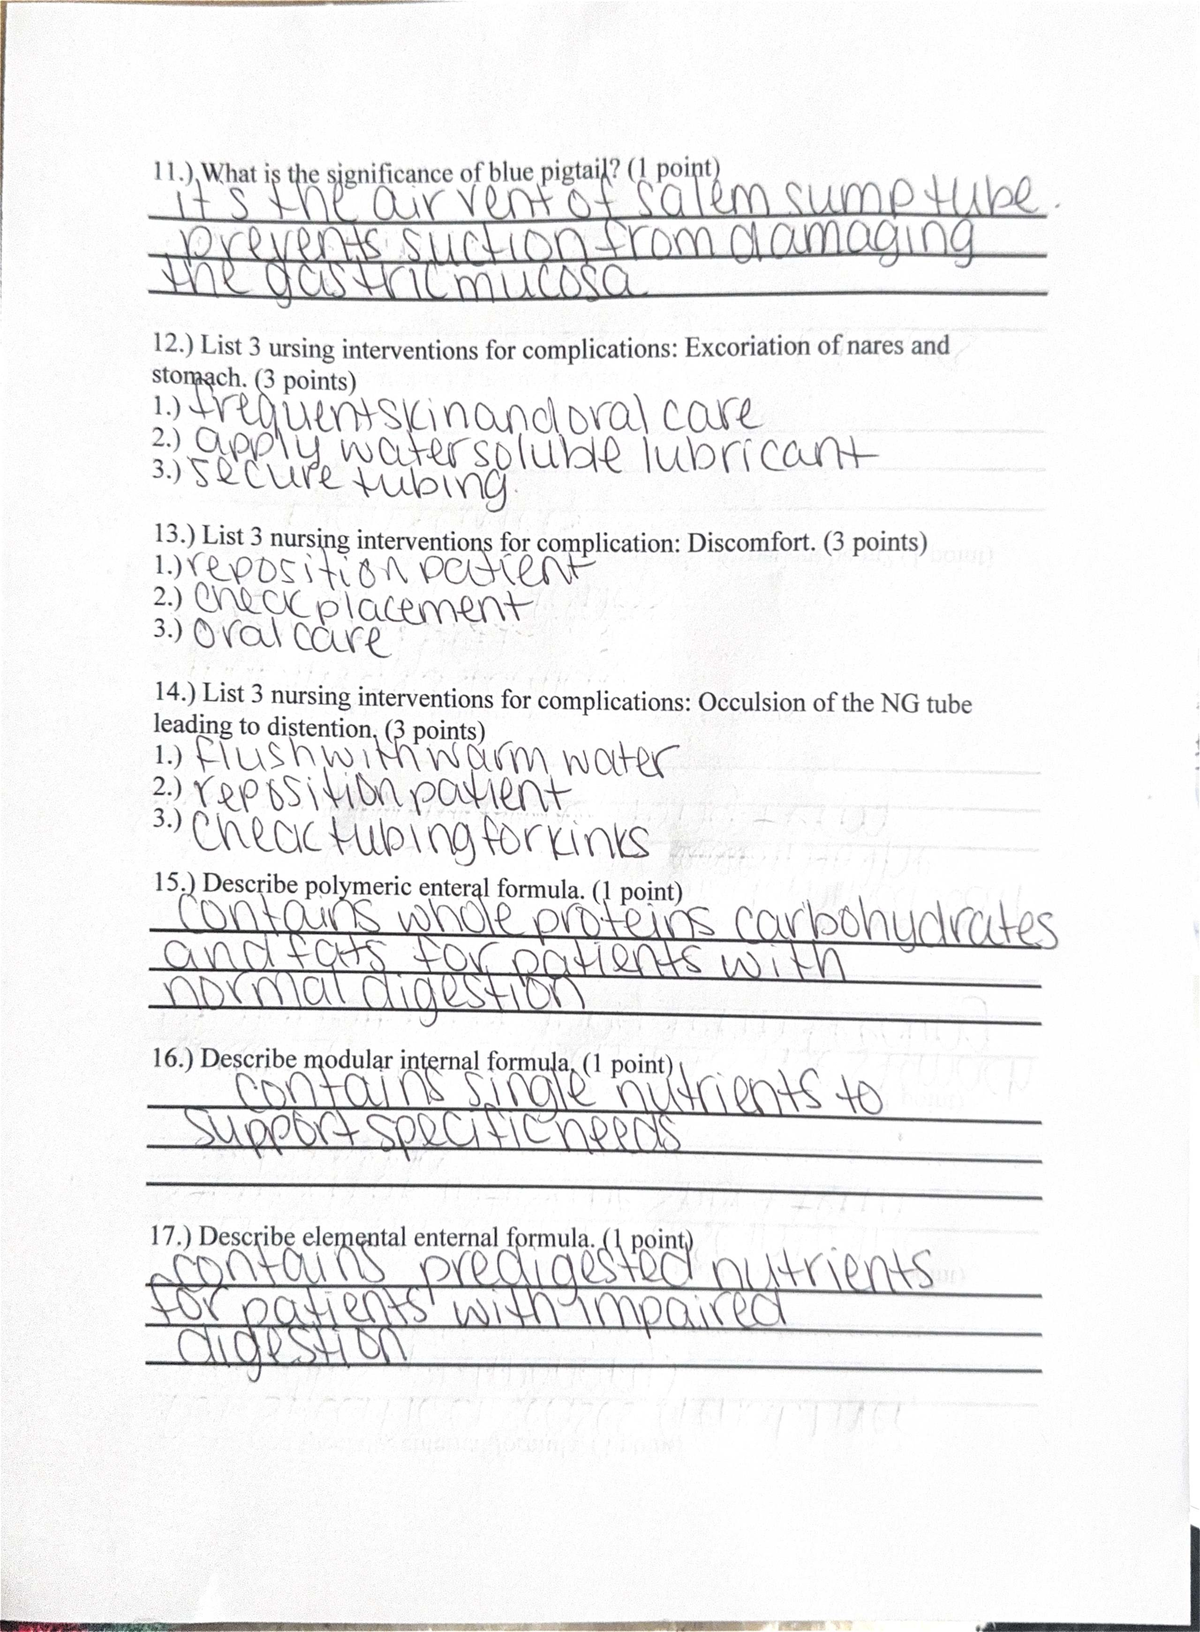 11.) What is the significance of blue pigtail? (1 point)
it's the air vent of salem sump tube.
prevents suction from damaging
the gastric mucosa
12.) List 3 ursing interventions for complications: Excoriation of nares and
stomach. (3 points)
1.) frequent skin and oral care
2.) apply water soluble lubricant
3.) secure tubing.
13.) List 3 nursing interventions for complication: Discomfort. (3 points)
1.) reposition patient
2.) check placement
3.) oral care
14.) List 3 nursing interventions for complications: Occulsion of the NG tube
leading to distention. (3 points)
1.) flush with warm water
2.) reposition patient
3.) check tubing for kinks
15.) Describe polymeric enteral formula. (1 point)
contains whole proteins carbohydrates
and fats for patients with
normal digestion
16.) Describe modular internal formula. (1 point)
contains single nutrients to
support specific needs
17.) Describe elemental enternal formula. (1 point)
contains predigested nutrients
for patients with impaired
digestion